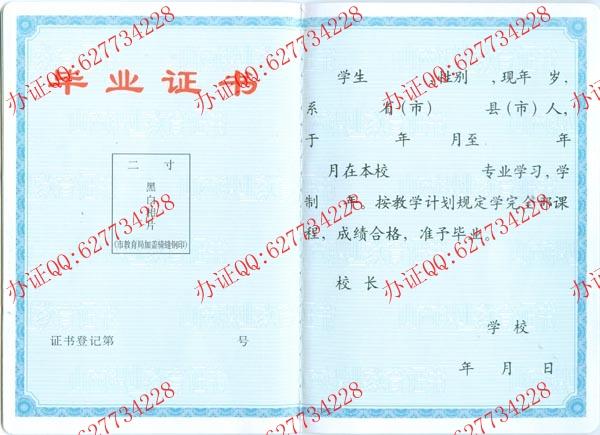 毕业证书
二 寸
黑白相片
(市教育局加盖骑缝钢印)
证书登记第 号
学生 ,性别 ,现年 岁,
系 省(市) 县(市)人,
于 年 月至 年
月在本校 专业学习,学
制 年。按教学计划规定学完全部课
程,成绩合格,准予毕业。
校 长
学 校
年 月 日
办证QQ:627734228
办证QQ:627734228
办证QQ:627734228
办证QQ:627734228
办证QQ:627734228
办证QQ:627734228
办证QQ:627734228
办证QQ:627734228